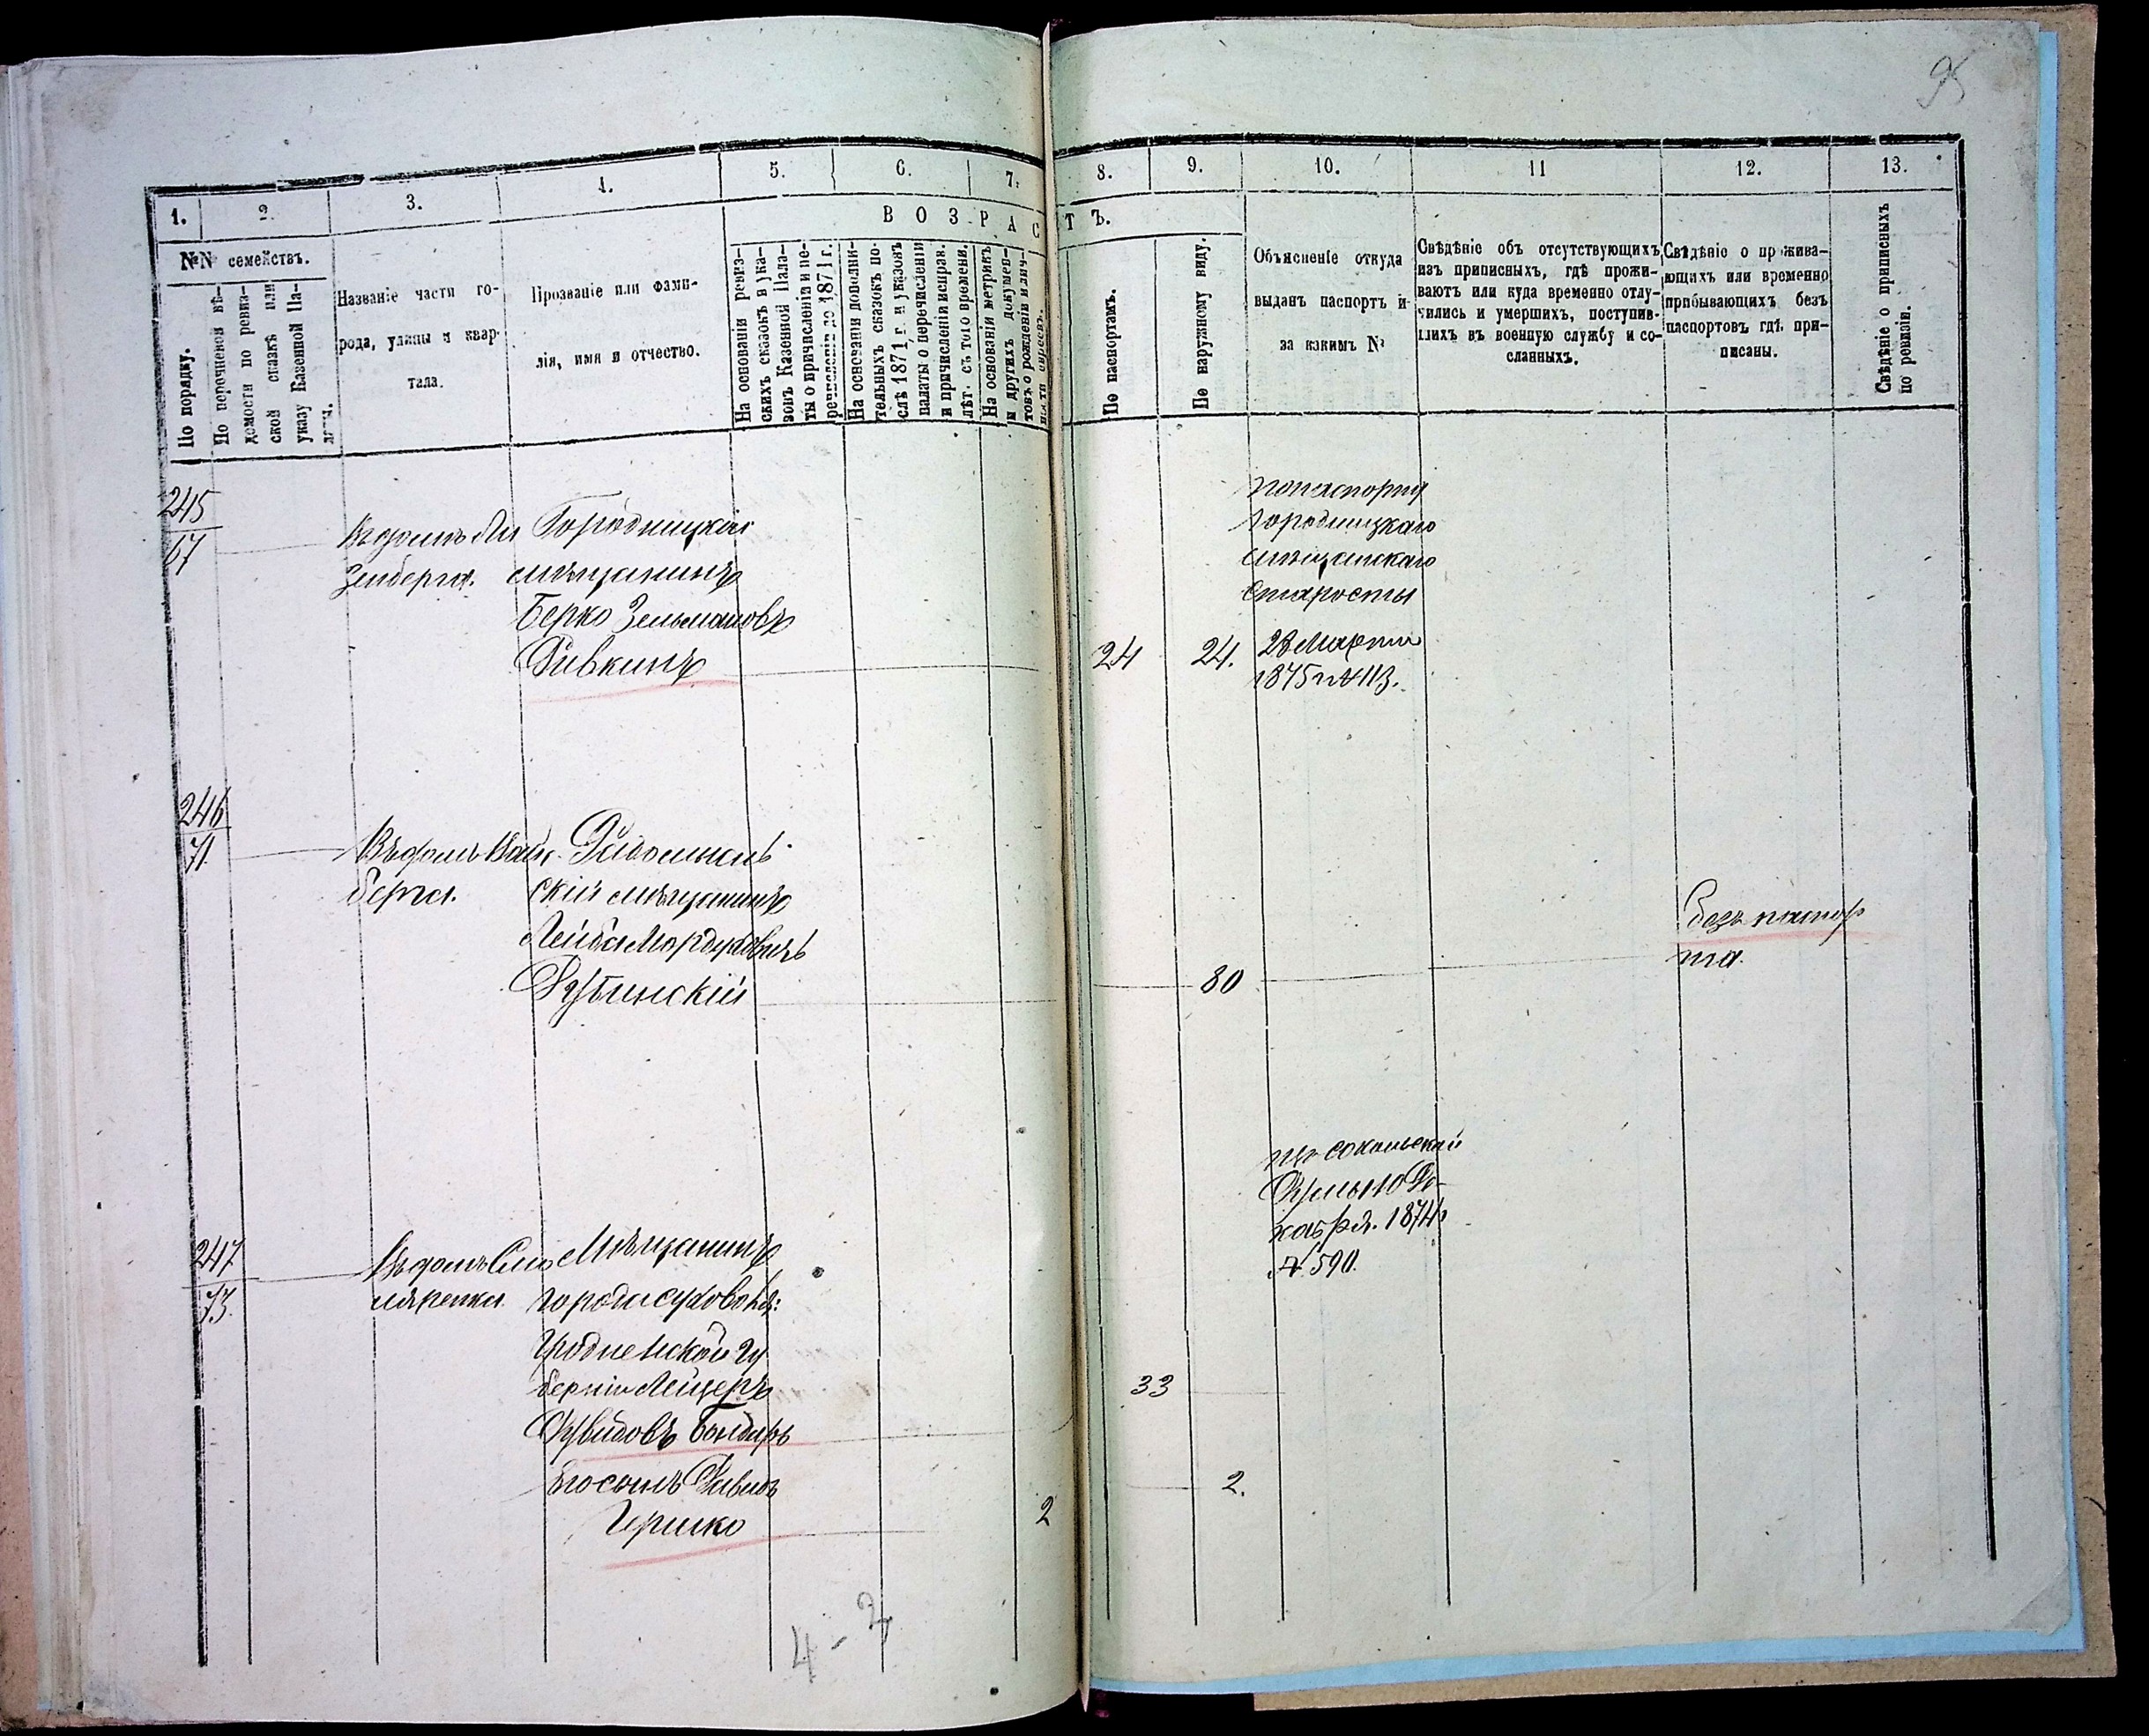 95
1.
2.
3.
4.
5.
6.
7.
8.
9.
10.
11
12.
13.
№№ семействъ.
По порядку.
По перечневой вѣ-
домости по ревиз-
ской сказкѣ или
указу Казенной Па-
латы.
Названіе части го-
рода, улицы и квар-
тала.
Прозваніе или фами-
лія, имя и отчество.
ВОЗРАСТЪ.
На основаніи ревиз-
скихъ сказокъ и ука-
зовъ Казенной Пала-
ты о причисленіи и пе-
речисленіи до 1871 г.
На основаніи дополни-
тельныхъ сказокъ по-
слѣ 1871 г. и указовъ
палаты о перечисленіи
и причисленіи исправ.
лѣт. съ того времени.
На основаніи метрикъ
и другихъ докумен-
товъ о рожденіи и лич-
ности евреевъ.
По паспортамъ.
По наружному виду.
Объясненіе откуда
выданъ паспортъ и
за какимъ №
Свѣдѣніе объ отсутствующихъ
изъ приписныхъ, гдѣ прожи-
ваютъ или куда временно отлу-
чились и умершихъ, поступив-
шихъ въ военную службу и со-
сланныхъ.
Свѣдѣніе о прожива-
ющихъ или временно
прибывающихъ безъ
паспортовъ гдѣ при-
писаны.
Свѣдѣніе о приписныхъ
по ревизіи.
245
67
Въ домѣ Ли
зенберга.
Городницкій
мѣщанинъ
Берко Зельмановъ
Ривкинъ
24
24.
по паспорту
Городницкаго
мѣщанскаго
старосты
28 Марта
1875 г № 113.
246
71.
Въ домѣ Вайн
берга.
Радомысль
скій мѣщанинъ
Лейба Мордуховичъ
Рубинскій
80
безъ паспор
та.
247
73.
Въ домѣ
ляренка
Мѣщанинъ
города Суховоля:
Гродненской Гу
берніи Лейзеръ
Давидовъ Бондарь
Его сынъ Давидъ
Гершко
2
33
2.
изъ Сокольской
Думы 10 Де-
кабря. 1874 г
№ 590.
4 - 2